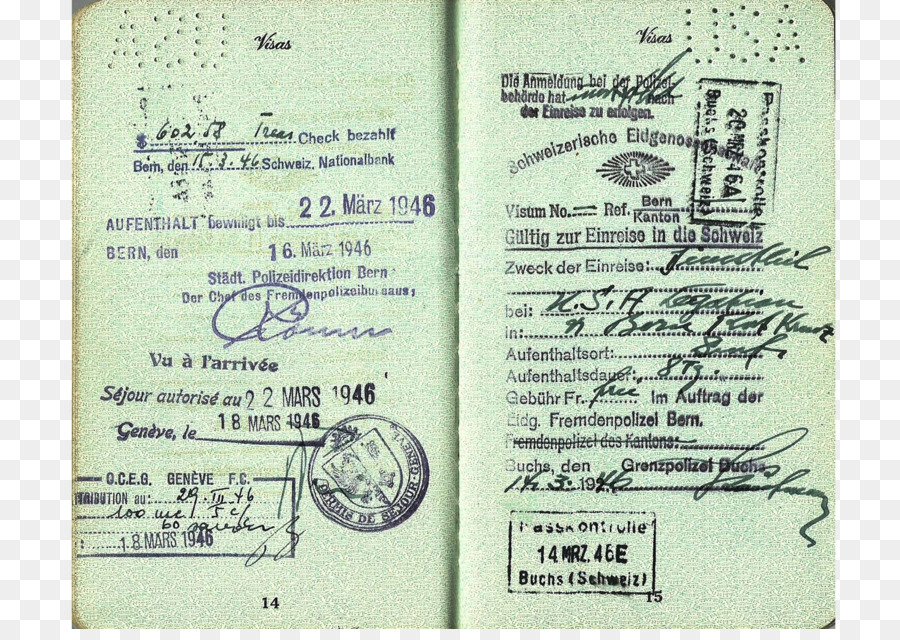 Visas
$ 602,58 Trav. Check bezahlt
Bern, den 15.3.46 Schweiz. Nationalbank
AUFENTHALT bewilligt bis 22. März 1946
BERN, den 16. März 1946
Städt. Polizeidirektion Bern
Der Chef des Fremdenpolizeibureaus:
Vu à l'arrivée
Séjour autorisé au 22 MARS 1946
Genève, le 18 MARS 1946
GENÈVE
PERMIS DE SÉJOUR
O.C.E.G. GENÈVE F.C.
TRIBUTION au: 29.III.46
100
60
18 MARS 1946
14
Visas
Die Anmeldung bei der Polizei-
behörde hat nach
der Einreise zu erfolgen.
Schweizerische Eidgenossenschaft
Passkontrolle
20 MRZ. 46 A
Buchs (Schweiz)
Visum No. Ref. Bern
Kanton
Gültig zur Einreise in die Schweiz
Zweck der Einreise:
bei: U.S.A Legation
in: Bern
Aufenthaltsort:
Aufenthaltsdauer: 8 Tg.
Gebühr Fr. Im Auftrag der
Eidg. Fremdenpolizei Bern.
Fremdenpolizei des Kantons:
Buchs, den Grenzpolizei Buchs
14.3.1946
Passkontrolle
14 MRZ. 46 E
Buchs (Schweiz)
15